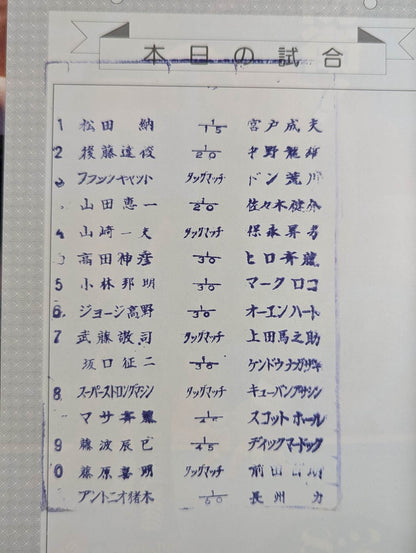 本日の試合
1 松田 納 1/15 宮戸成夫
2 後藤達俊 1/20 中野龍雄
タッグマッチ ドン荒川
山田恵一 1/20 佐々木健介
4 山崎一夫 タッグマッチ 保永昇男
高田伸彦 1/30 ヒロ斉藤
5 小林邦明 1/30 マークロコ
6 ジョージ高野 1/30 オーエンハート
7 武藤敬司 タッグマッチ 上田馬之助
坂口征二 1/30 ケンドウナガサキ
8 スーパーストロングマシン タッグマッチ キューバンアサシン
マサ斉藤 スコットホール
9 藤波辰巳 1/45 ディックマードック
0 藤原喜明 タッグマッチ 前田
アントニオ猪木 1/60 長州 力